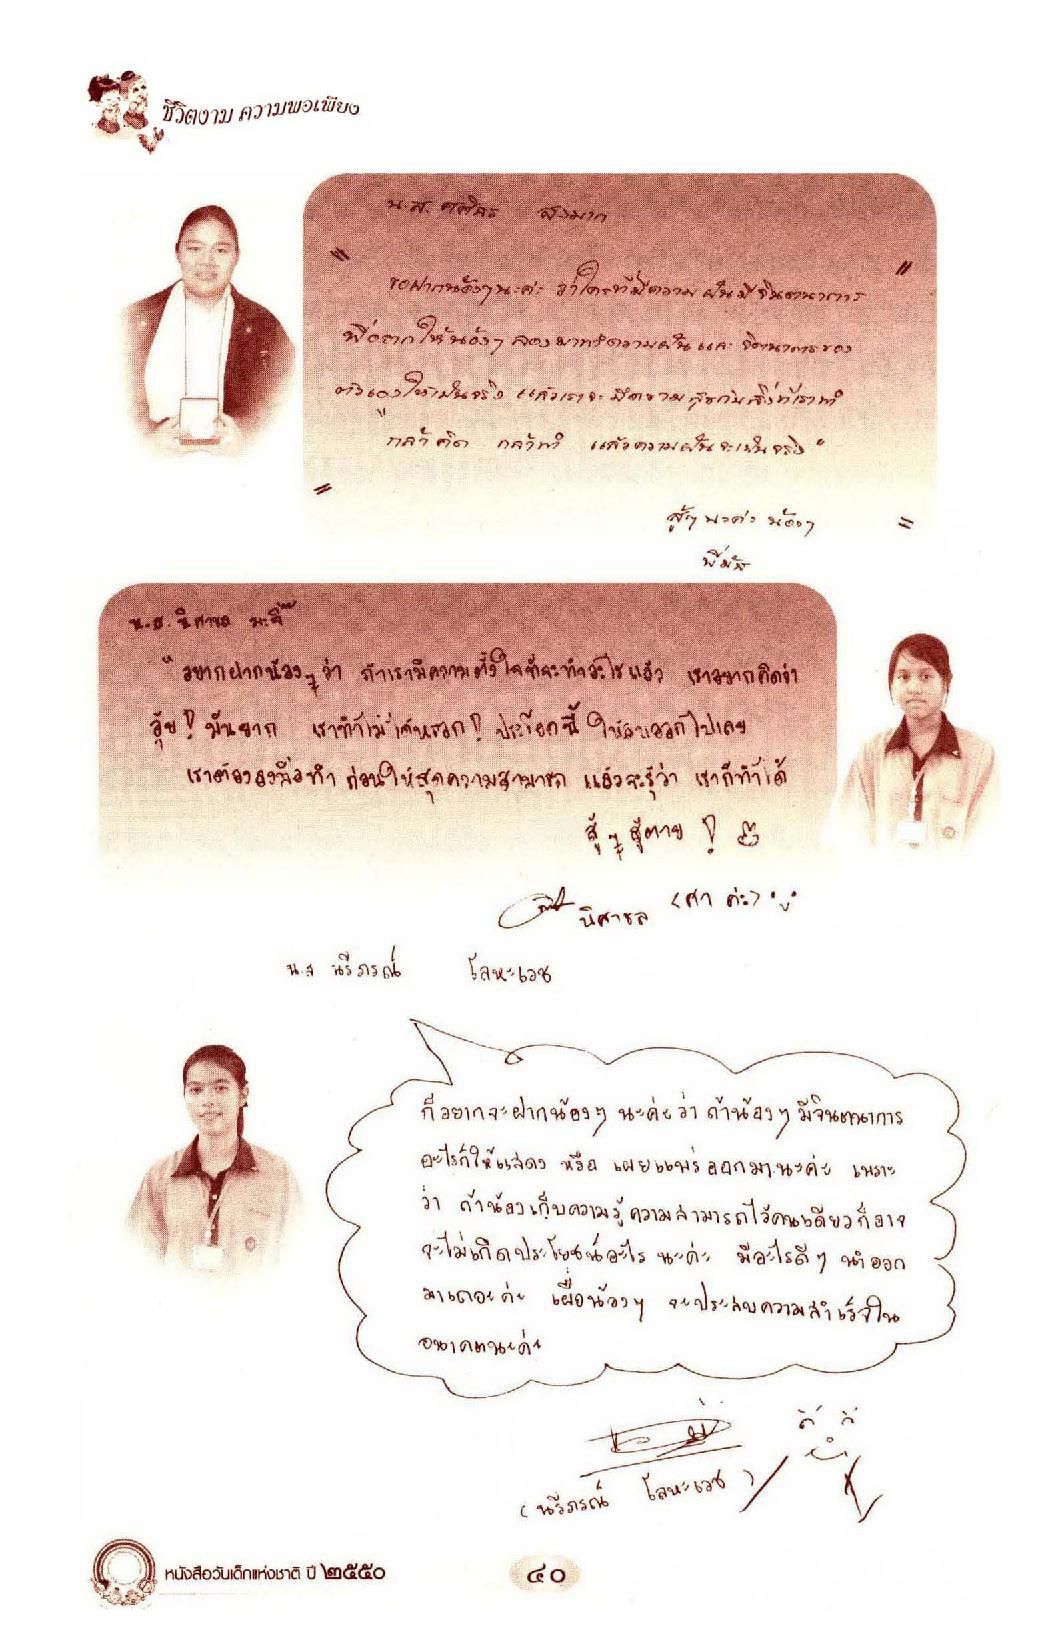 ชีวิตงาม ความพอเพียง
น.ส. ศศิธร สงมาก
"
ขอฝากน้องๆนะค่ะ ว่าใครที่มีความฝันมีจินตนาการ
"
พี่อยากให้น้องๆ ลองมาทำความฝันและ จิตนาการของ
ตัวเองให้เป็นจริง แล้วเราจะมีความสุขกับสิ่งที่เราทำ
"กล้าคิด กล้าทำ แล้วความฝันจะเป็นจริง"
สู้ๆ นะค่ะ น้องๆ
น.ส. นิศาชล มะลิ
"อยากฝากน้องๆ ว่า ถ้าเรามีความตั้งใจที่จะทำอะไรแล้ว เราอยากคิดว่า
อุ้ย! มันยาก เราทำไม่ได้หรอก! ประโยคนี้ ให้ลบออกไปเลย
เราต้องลงมือทำ ก่อนให้สุดความสามารถ แล้วจะรู้ว่า เราก็ทำได้
สู้ๆ สู้ตาย !
นิศาชล (ศา ค่ะ)
น.ส นรีภรณ์ โลหะเวช
ก็อยากจะฝากน้องๆ นะค่ะว่า ถ้าน้องๆ มีจินตนาการ
อะไรก็ให้แสดง หรือ เผยแพร่ออกมานะค่ะ เพราะ
ว่า ถ้าน้องเก็บความรู้ ความสามารถไว้คนเดียวก็อาจ
จะไม่เกิดประโยชน์อะไร นะค่ะ มีอะไรดีๆ นำออก
มาเถอะค่ะ เผื่อน้องๆ จะประสบความสำเร็จใน
อนาคตนะค่ะ
(นรีภรณ์ โลหะเวช)
หนังสือวันเด็กแห่งชาติ ปี ๒๕๕๐
๔๐